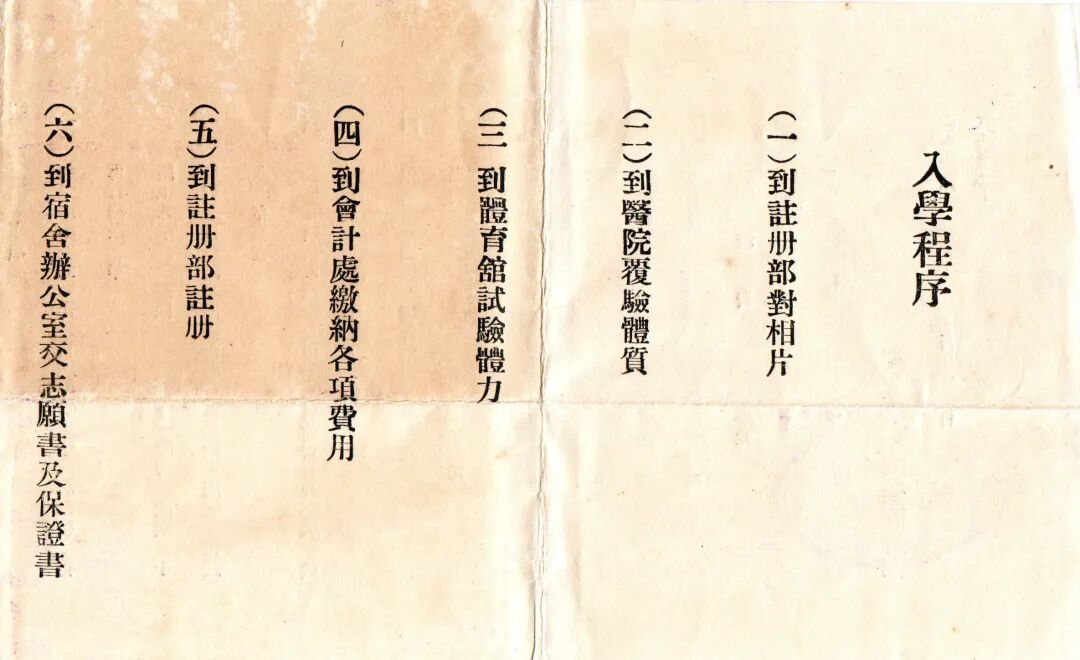 入學程序
(一)到註册部對相片
(二)到醫院覆驗體質
(三 到體育舘試驗體力
(四)到會計處繳納各項費用
(五)到註册部註册
(六)到宿舍辦公室交志願書及保證書